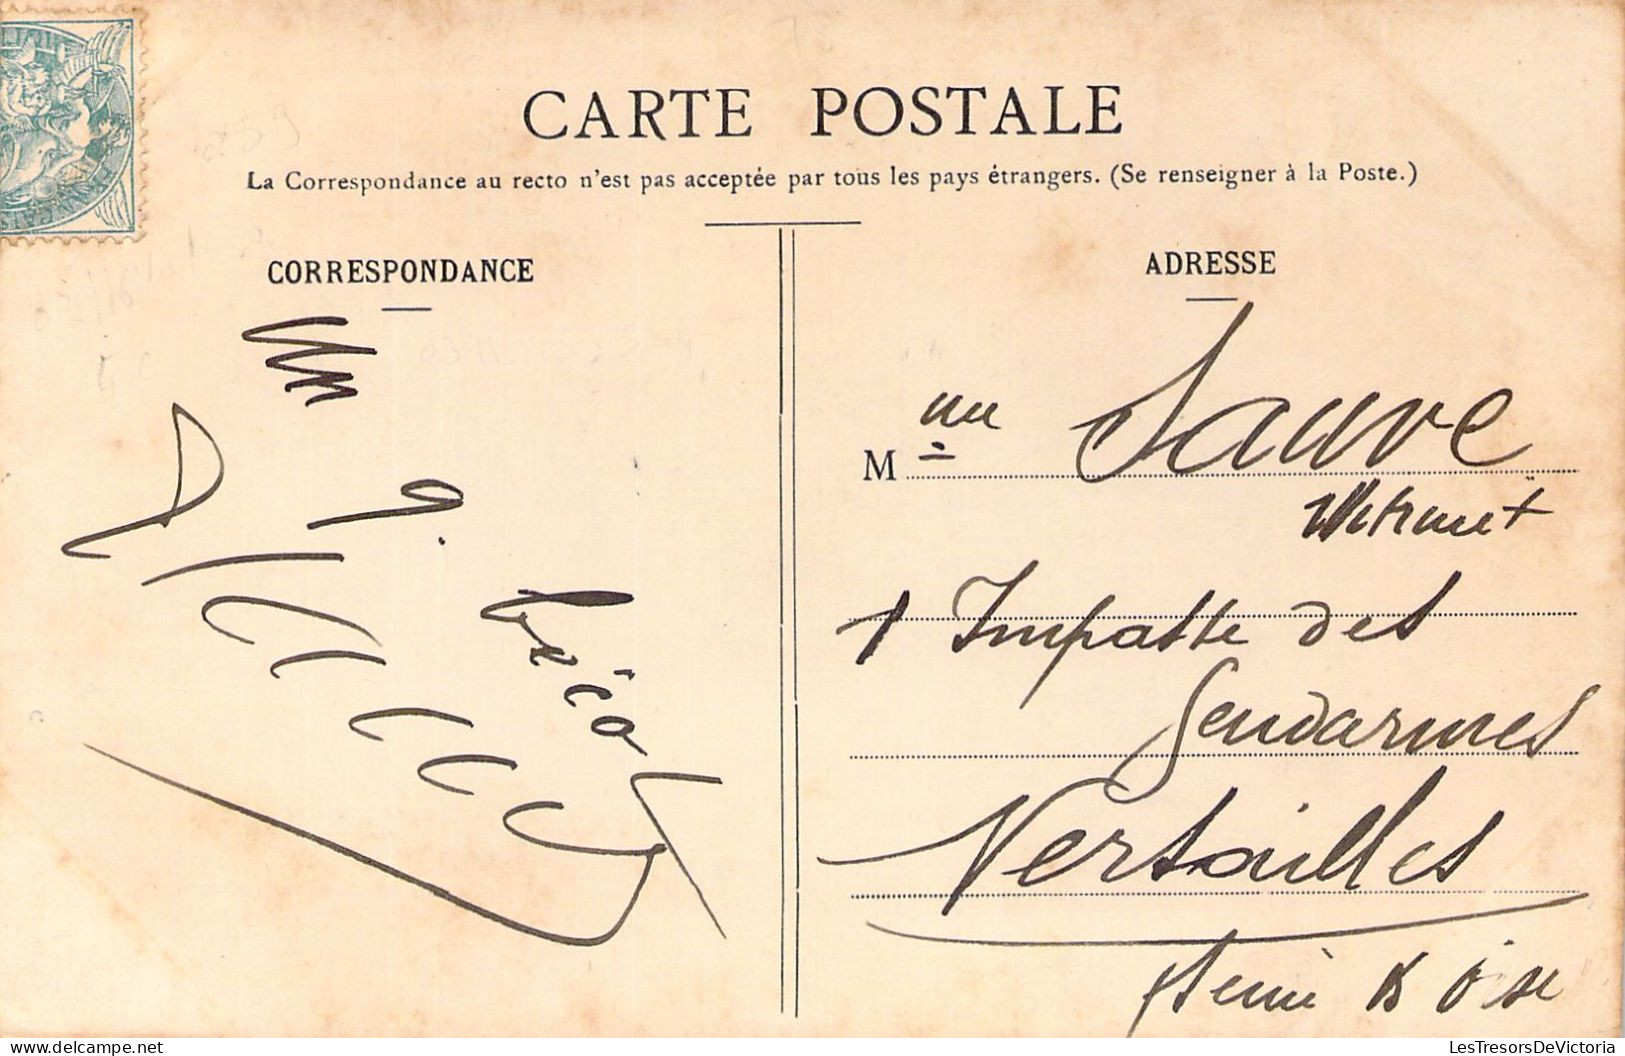 CARTE POSTALE
La Correspondance au recto n'est pas acceptée par tous les pays étrangers. (Se renseigner à la Poste.)
CORRESPONDANCE
Un
ADRESSE
M
Sauve
1 Impasse des
Gendarmes
Versailles
Seine & Oise
LesTresorsDeVictoria